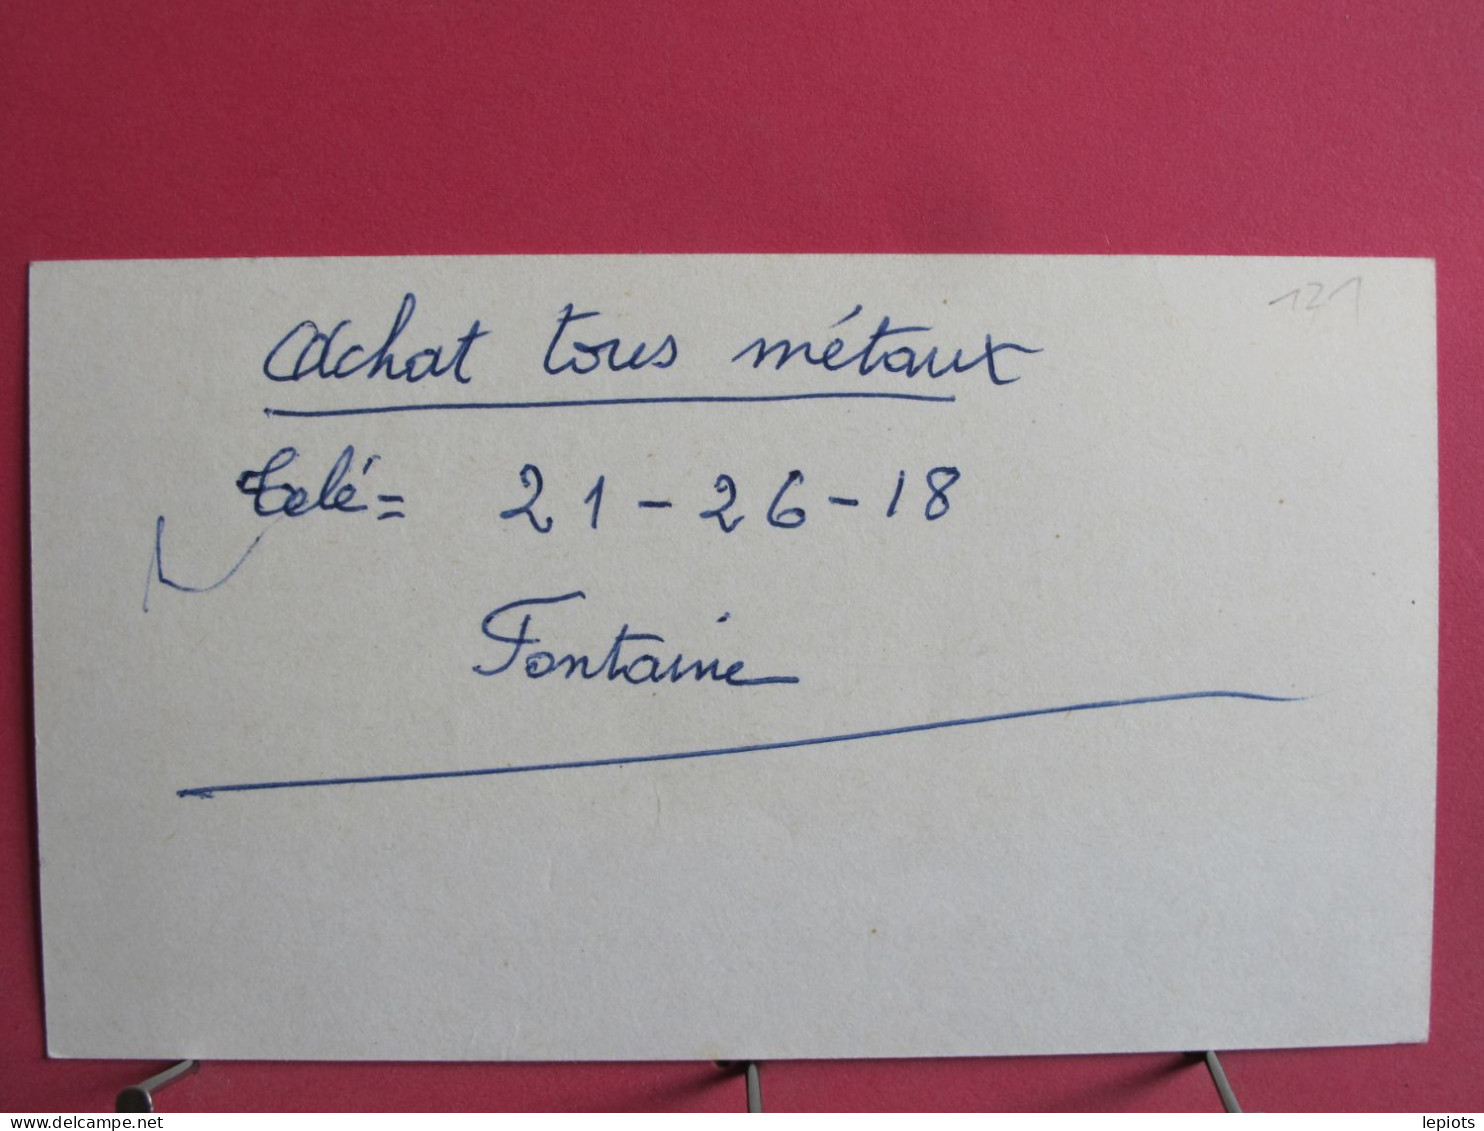 121
Achat tous métaux
Telé = 21-26-18
Fontaine
www.delcampe.net
lepiots